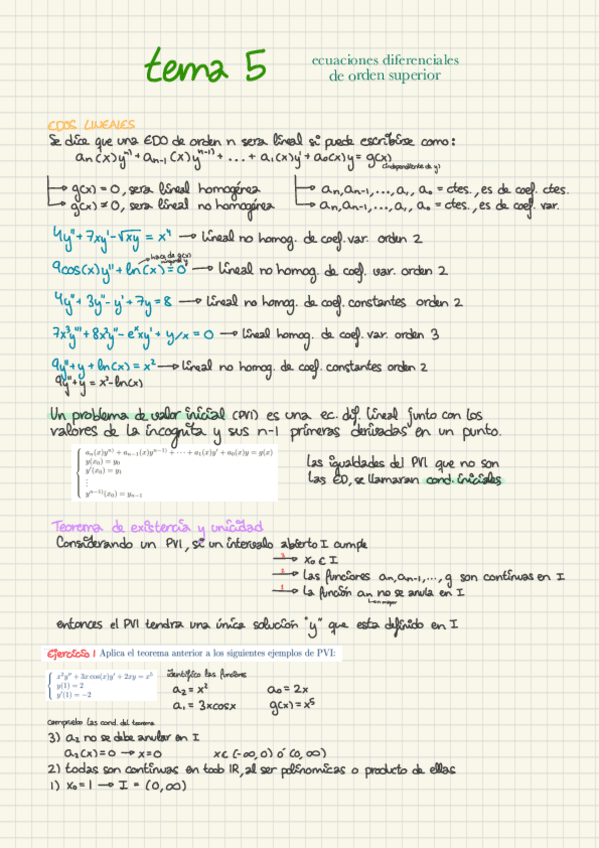 tema 5
ecuaciones diferenciales
de orden superior
EDOS LINEALES
Se dice que una EDO de orden n sera lineal si puede escribirse como:
an(x)y⁽ⁿ⁾ + an-1(x)y⁽ⁿ⁻¹⁾ + ... + a₁(x)y' + a₀(x)y = g(x)
(independiente de y)
→ g(x) = 0, sera lineal homogénea
→ g(x) ≠ 0, sera lineal no homogénea
→ an, an-1, ..., a₁, a₀ = ctes., es de coef. ctes.
→ an, an-1, ..., a₁, a₀ = ctes., es de coef. var.
4y'' + 7xy' - √xy = x⁴ → lineal no homog. de coef. var. orden 2
9cos(x)y'' + ln(x) = 0 → lineal no homog. de coef. var. orden 2
4y'' + 3y'' - y' + 7y = 8 → lineal no homog. de coef. constantes orden 2
7x³y''' + 8x²y'' - eˣxy' + y/x = 0 → lineal homog. de coef. var. orden 3
9y'' + y + ln(x) = x² → lineal no homog. de coef. constantes orden 2
9y'' + y = x³ - ln(x)
Un problema de valor inicial (PVI) es una ec. dif. lineal junto con los
valores de la incognita y sus n-1 primeras derivadas en un punto.
an(x)y⁽ⁿ⁾ + an-1(x)y⁽ⁿ⁻¹⁾ + ··· + a₁(x)y' + a₀(x)y = g(x)
y(x₀) = y₀
y'(x₀) = y₁
⋮
y⁽ⁿ⁻¹⁾(x₀) = yn-1
las igualdades del PVI que no son
las ED, se llamaran cond. iniciales
Teorema de existencia y unicidad
Considerando un PVI, si un intervalo abierto I cumple
3 → x₀ ∈ I
2 → las funciones an, an-1, ..., g son continuas en I
1 → la función an no se anula en I
entonces el PVI tendra una única solución "y" que esta definido en I
Ejercicio 1 Aplica el teorema anterior a los siguientes ejemplos de PVI:
x²y'' + 3x cos(x)y' + 2xy = x⁵
y(1) = 2
y'(1) = -2
identifico las funciones
a₂ = x² a₀ = 2x
a₁ = 3xcosx g(x) = x⁵
compruebo las cond. del teorema
3) a₂ no se debe anular en I
a₂(x) = 0 → x = 0 x ∈ (-∞, 0) ó (0, ∞)
2) todas son continuas en todo IR, al ser polinomicas o producto de ellas
1) x₀ = 1 → I = (0, ∞)